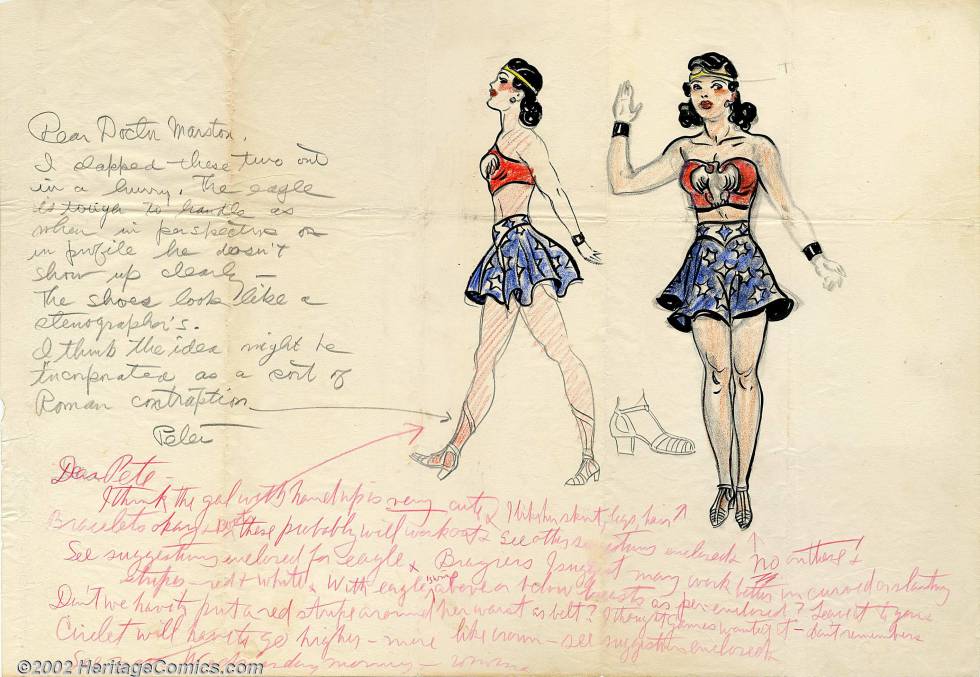 Dear Doctor Marston,
I slapped these two out
in a hurry. The eagle
is tough to handle as
when in perspective or
in profile he doesn't
show up clearly —
The shoes look like a
stenographer's.
I think the idea might be
incorporated as a sort of
Roman contraption
Peter
Dear Pete —
I think the gal with hand up is very cute & I like her skirt, legs, hair
Bracelets okay & boots these probably will work out & See other suggestions enclosed No on these &
See suggestions enclosed for eagle & I suggest may work better in curved or slanting
stripes — red & white & With eagle's wings above or below breasts as per enclosed? Leave it to you
Don't we have to put a red stripe around her waist as belt? I thought wanted it — don't remember
Circlet will have to go higher — more like crown — see suggestion enclosed
Wednesday morning —
©2002 HeritageComics.com